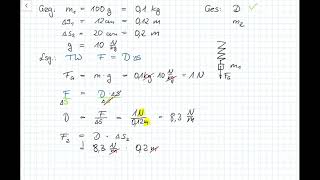 Geg: m₁ = 100 g = 0,1 kg Ges: D
ΔS₁ = 12 cm = 0,12 m m₂
ΔS₂ = 20 cm = 0,2 m
g = 10 N/kg
Lsg: TW F = D·Δs
F_G = m · g = 0,1 kg · 10 N/kg = 1 N
F = D · ΔS
ΔS
D = F/ΔS = 1N/0,12m = 8,3 N/m
F₂ = D · ΔS₂
= 8,3 N/m · 0,2 m
m₁
F_G